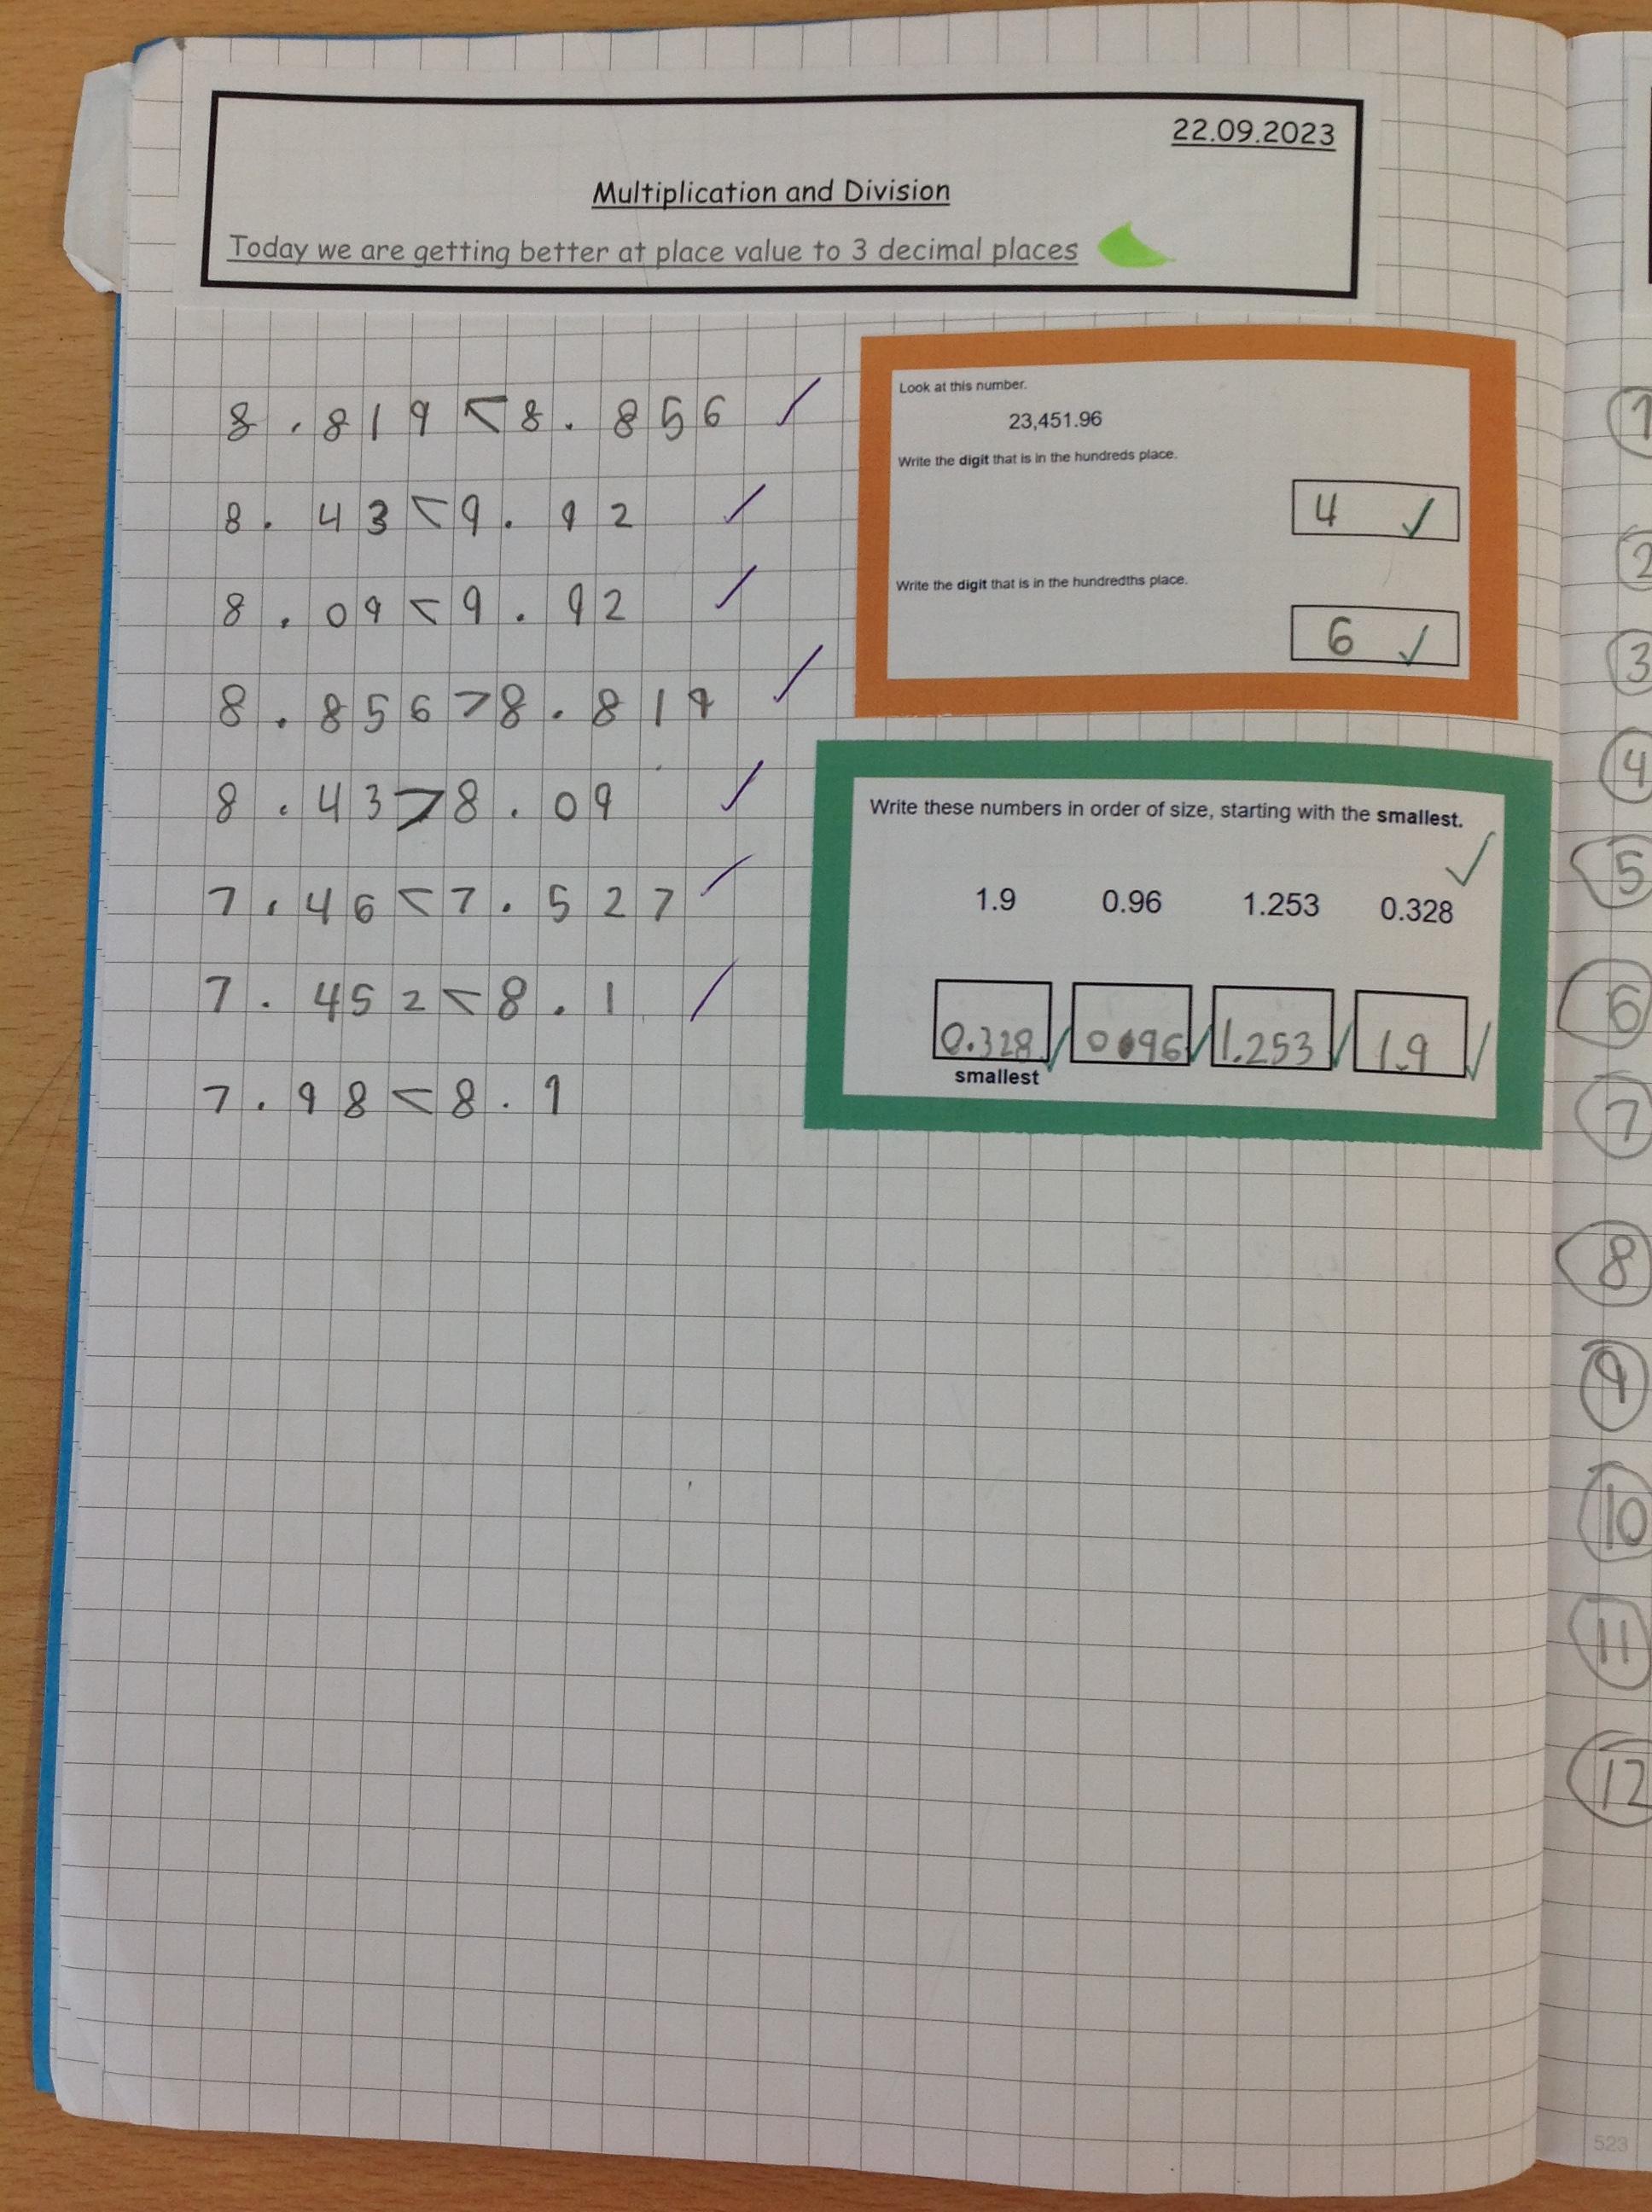 22.09.2023
Multiplication and Division
Today we are getting better at place value to 3 decimal places
8.819 < 8.856
8.43 < 9.92
8.09 < 9.92
8.856 > 8.819
8.43 > 8.09
7.46 < 7.527
7.452 < 8.1
7.98 < 8.1
Look at this number.
23,451.96
Write the digit that is in the hundreds place.
4
Write the digit that is in the hundredths place.
6
Write these numbers in order of size, starting with the smallest.
1.9 0.96 1.253 0.328
0.328 0.96 1.253 1.9
smallest
1
2
3
4
5
6
7
8
9
10
11
12
523